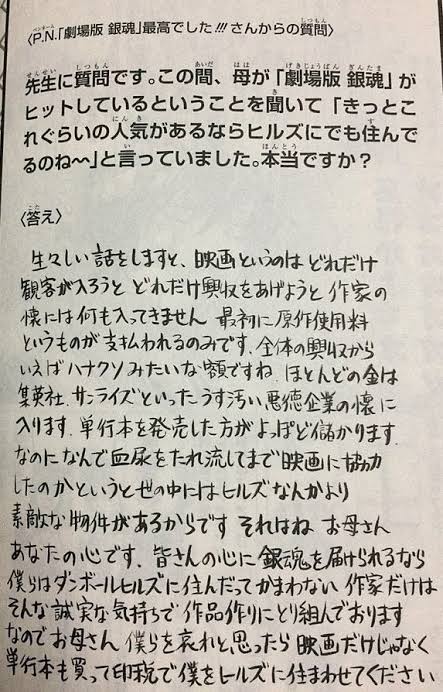 〈P.N.「劇場版 銀魂」最高でした!!!さんからの質問〉
先生に質問です。この間、母が「劇場版 銀魂」が
ヒットしているということを聞いて「きっとこ
れぐらいの人気があるならヒルズにでも住んで
るのね〜」と言っていました。本当ですか?
〈答え〉
生々しい話をしますと、映画というのは どれだけ
観客が入ろうと どれだけ興収をあげようと 作家の
懐には何も入ってきません 最初に原作使用料
というものが支払われるのみです.全体の興収から
いえばハナクソみたいな額ですね.ほとんどの金は
集英社.サンライズといった うす汚い悪徳企業の懐に
入ります.単行本を発売した方がよっぽど儲かります.
なのになんで血尿をたれ流してまで映画に協力
したのかというと世の中にはヒルズなんかより
素敵な物件があるからです それはね お母さん
あなたの心です.皆さんの心に銀魂を届けられるなら
僕らはダンボールヒルズに住んだってかまわない 作家だけは
そんな誠実な気持ちで作品作りにとり組んでおります
なのでお母さん 僕らを哀れと思ったら 映画だけじゃなく
単行本も買って印税で僕をヒルズに住まわせてください